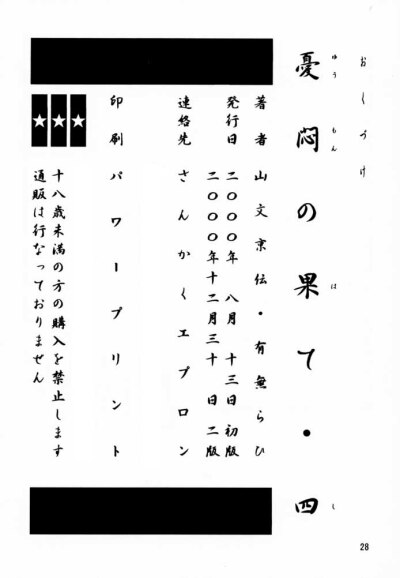 おくづけ
憂悶の果て・四
ゆうもん は し
著者 山文京伝・有無らひ
発行日 二〇〇〇年 八月 十三日 初版
二〇〇〇年十二月三十日 二版
連絡先 さんかくエプロン
印刷 パワープリント
★★★
十八歳未満の方の購入を禁止します
通販は行なっておりません
28